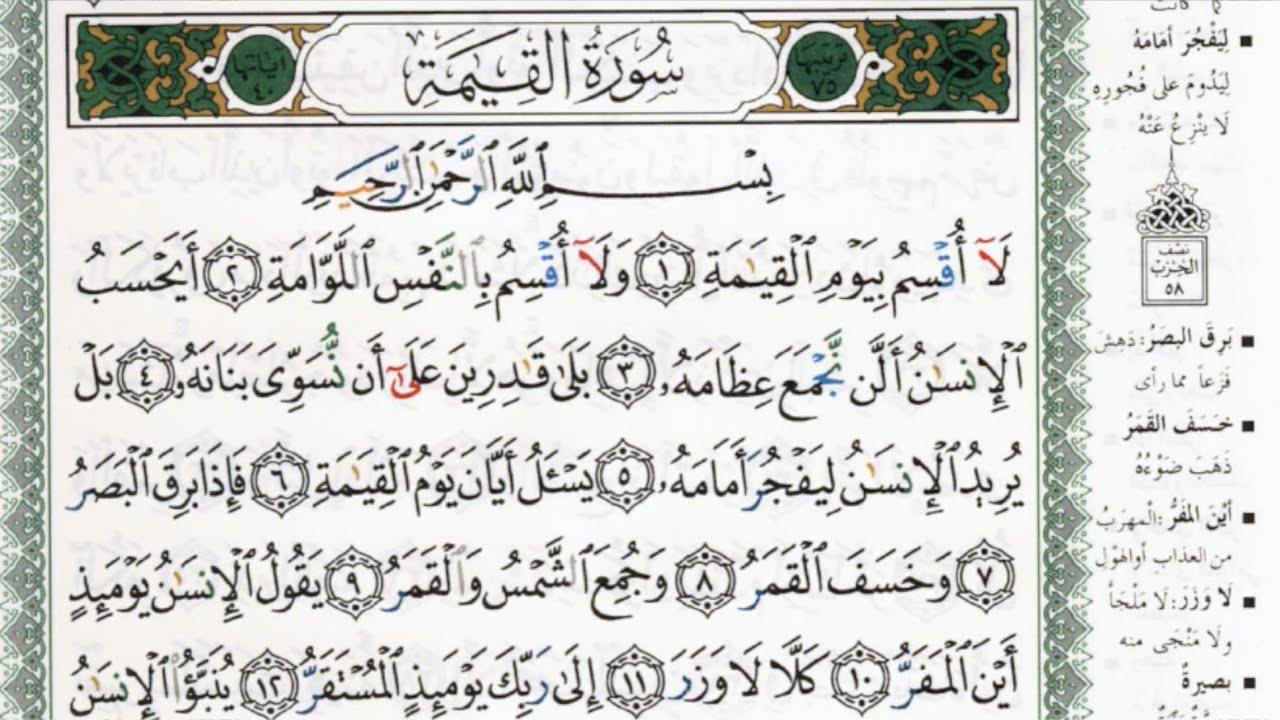 ترتيبها ٧٥
سُورَةُ القِيَٰمَةِ
آياتها ٤٠
بِسْمِ ٱللَّهِ ٱلرَّحْمَٰنِ ٱلرَّحِيمِ
لَآ أُقْسِمُ بِيَوْمِ ٱلْقِيَٰمَةِ ١ وَلَآ أُقْسِمُ بِٱلنَّفْسِ ٱللَّوَّامَةِ ٢ أَيَحْسَبُ
ٱلْإِنسَٰنُ أَلَّن نَّجْمَعَ عِظَامَهُۥ ٣ بَلَىٰ قَٰدِرِينَ عَلَىٰٓ أَن نُّسَوِّىَ بَنَانَهُۥ ٤ بَلْ
يُرِيدُ ٱلْإِنسَٰنُ لِيَفْجُرَ أَمَامَهُۥ ٥ يَسْـَٔلُ أَيَّانَ يَوْمُ ٱلْقِيَٰمَةِ ٦ فَإِذَا بَرِقَ ٱلْبَصَرُ
٧ وَخَسَفَ ٱلْقَمَرُ ٨ وَجُمِعَ ٱلشَّمْسُ وَٱلْقَمَرُ ٩ يَقُولُ ٱلْإِنسَٰنُ يَوْمَئِذٍ
أَيْنَ ٱلْمَفَرُّ ١٠ كَلَّا لَا وَزَرَ ١١ إِلَىٰ رَبِّكَ يَوْمَئِذٍ ٱلْمُسْتَقَرُّ ١٢ يُنَبَّؤُا۟ ٱلْإِنسَٰنُ
كانت
لِيَفْجُرَ أمَامَهُ
لِيَدُومَ على فُجُورِهِ
لَا يَنْزِعُ عَنْهُ
نِصْف
الحِزْب
٥٨
بَرِقَ البَصَرُ: دَهِشَ
فَزَعاً مما رأى
خَسَفَ القَمَرُ
ذَهَبَ ضَوْءُهُ
أيْنَ المَفَرُّ: المْهرَبُ
من العذاب أو الهَوْل
لَا وَزَرَ: لَا مَلْجَأ
ولَا مَنْجَى منه
بصيرةٌ